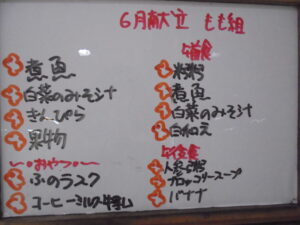 6月献立 もも組
煮魚
白菜のみそ汁
きんぴら
果物
〜・おやつ・〜
ふのラスク
コーヒーミルク・牛乳
午前食
粉粥
煮魚
白菜のみそ汁
白和え
午後食
人参粥
ブロッコリースープ
バナナ